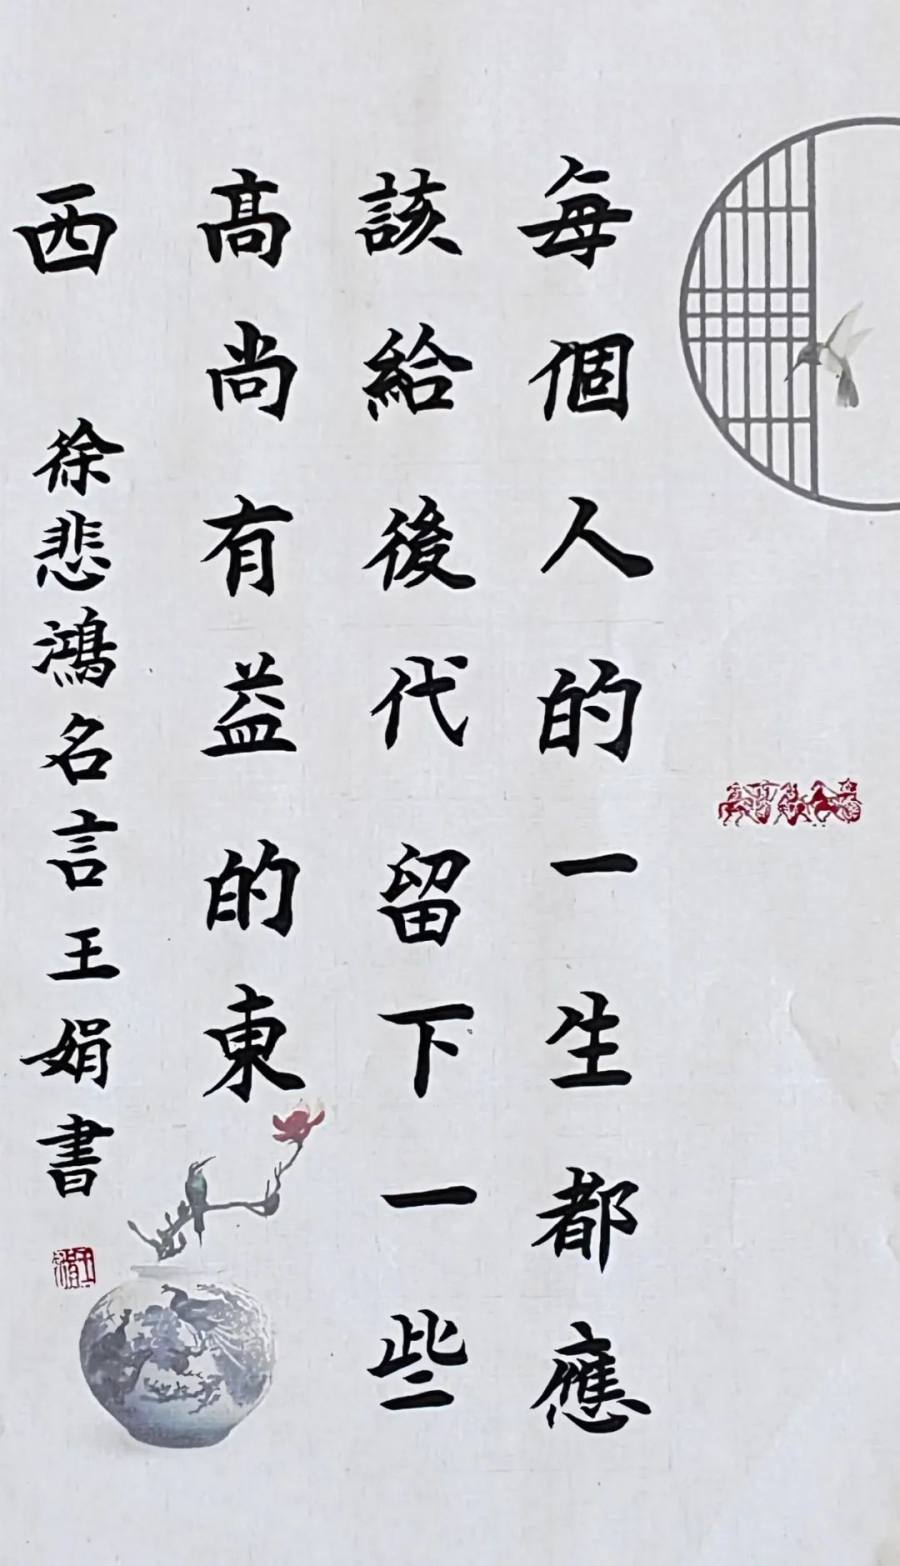 每個人的一生都應
該給後代留下一些
髙尚有益的東
西
徐悲鴻名言王娟書